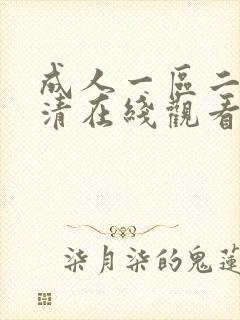 成人一區二
清在綫觀看
柒月柒的鬼蓮